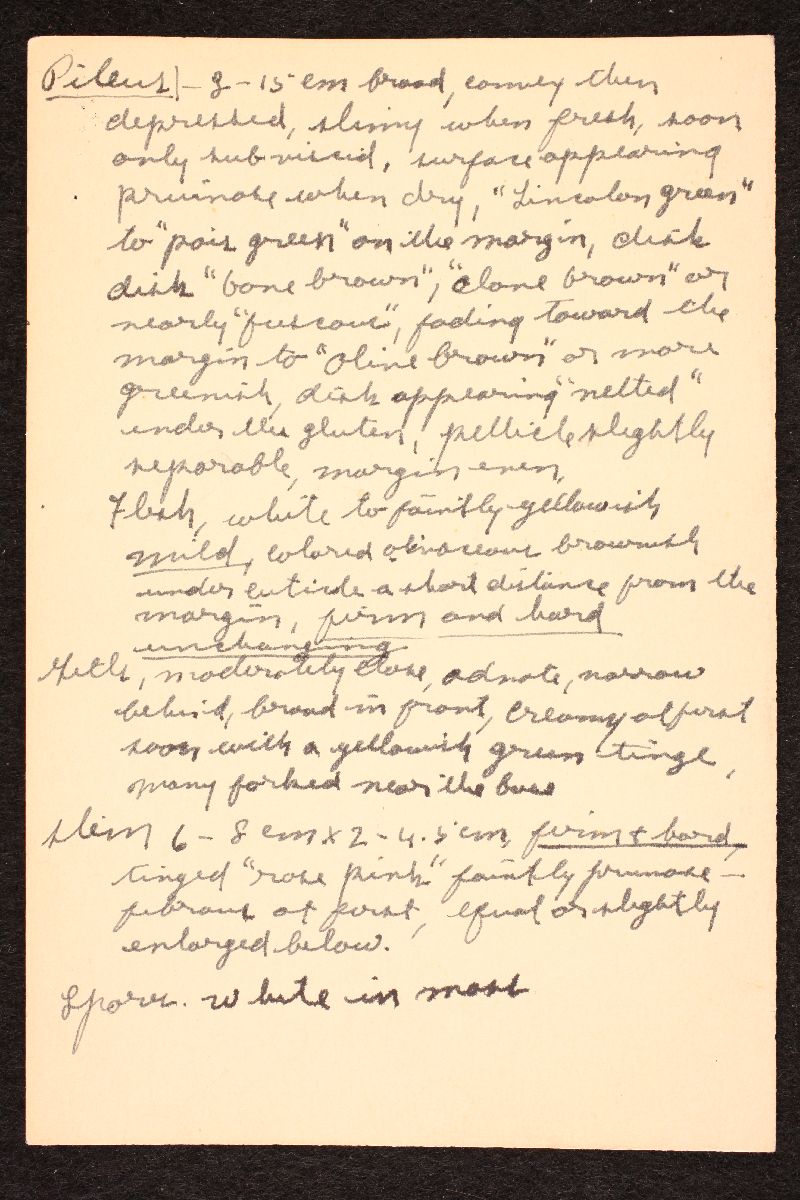 Pileus - 8 - 15 cm broad, convex then
depressed, slimy when fresh, soon
only subviscid, surface appearing
pruinose when dry, "Lincoln green"
to "pois green" on the margin, disk
disk "bone brown", "clove brown" or
nearly "fuscous", fading toward the
margin to "olive brown" or more
greenish, disk appearing "netted"
under the gluten, pellicle slightly
separable, margin even,
Flesh, white to faintly yellowish
mild, colored olivaceous brownish
under cuticle a short distance from the
margin, firm and hard
unchanging
Gills, moderately close, adnate, narrow
behind, broad in front, creamy at first
soon with a yellowish green tinge,
many forked near the base
stem 6 - 8 cm x 2 - 4.5 cm, firm & hard,
tinged "rose pink" faintly pruinose -
fibrous at first, equal or slightly
enlarged below.
Spores. white in mass